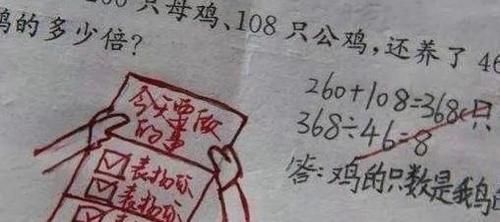 只母鸡、108 只公鸡,还养了 46
的多少倍?
260+108=368(只
368÷46=8
答:鸡的只数是鹅
今天要做
的事
表扬你
表扬你
表扬你